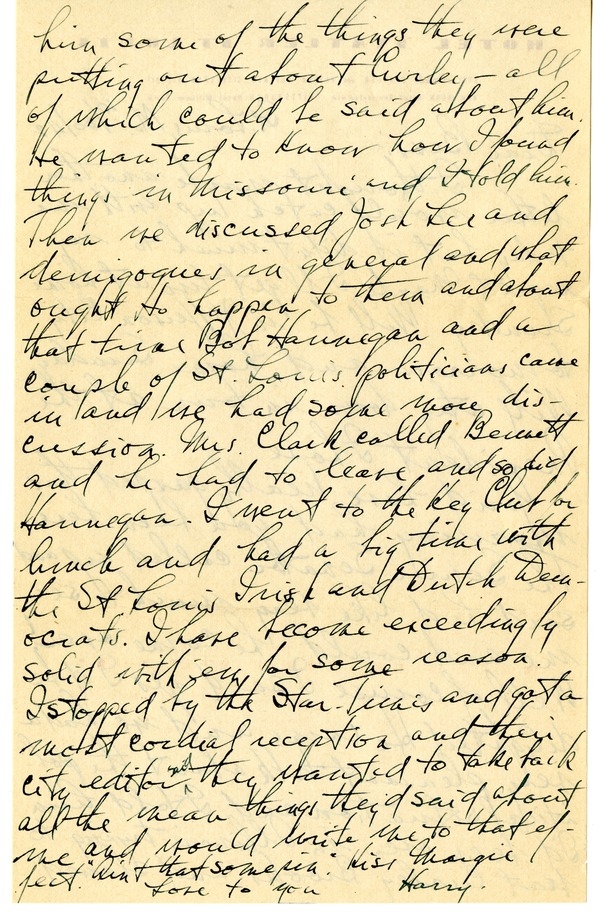 him some of the things they were
putting out about Curley – all
of which could be said about him.
He wanted to know how I found
things in Missouri and I told him.
Then we discussed Josh Lee and
demigogues in general and what
ought to happen to them and about
that time Bob Hannegan and a
couple of St. Louis politicians came
in and we had some more dis-
cussion. Mrs. Clark called Bennett
and he had to leave and so did
Hannegan. I went to the Key Club for
lunch and had a big time with
the St Louis Irish and Dutch Dem-
ocrats. I have become exceedingly
solid with em for some reason.
I stopped by the Star-Times and got a
most cordial reception and their
city editor said they wanted to take back
all the mean things they'd said about
me and would write me to that ef-
fect. "Ain't that somepin." Kiss Margie
Love to you Harry.